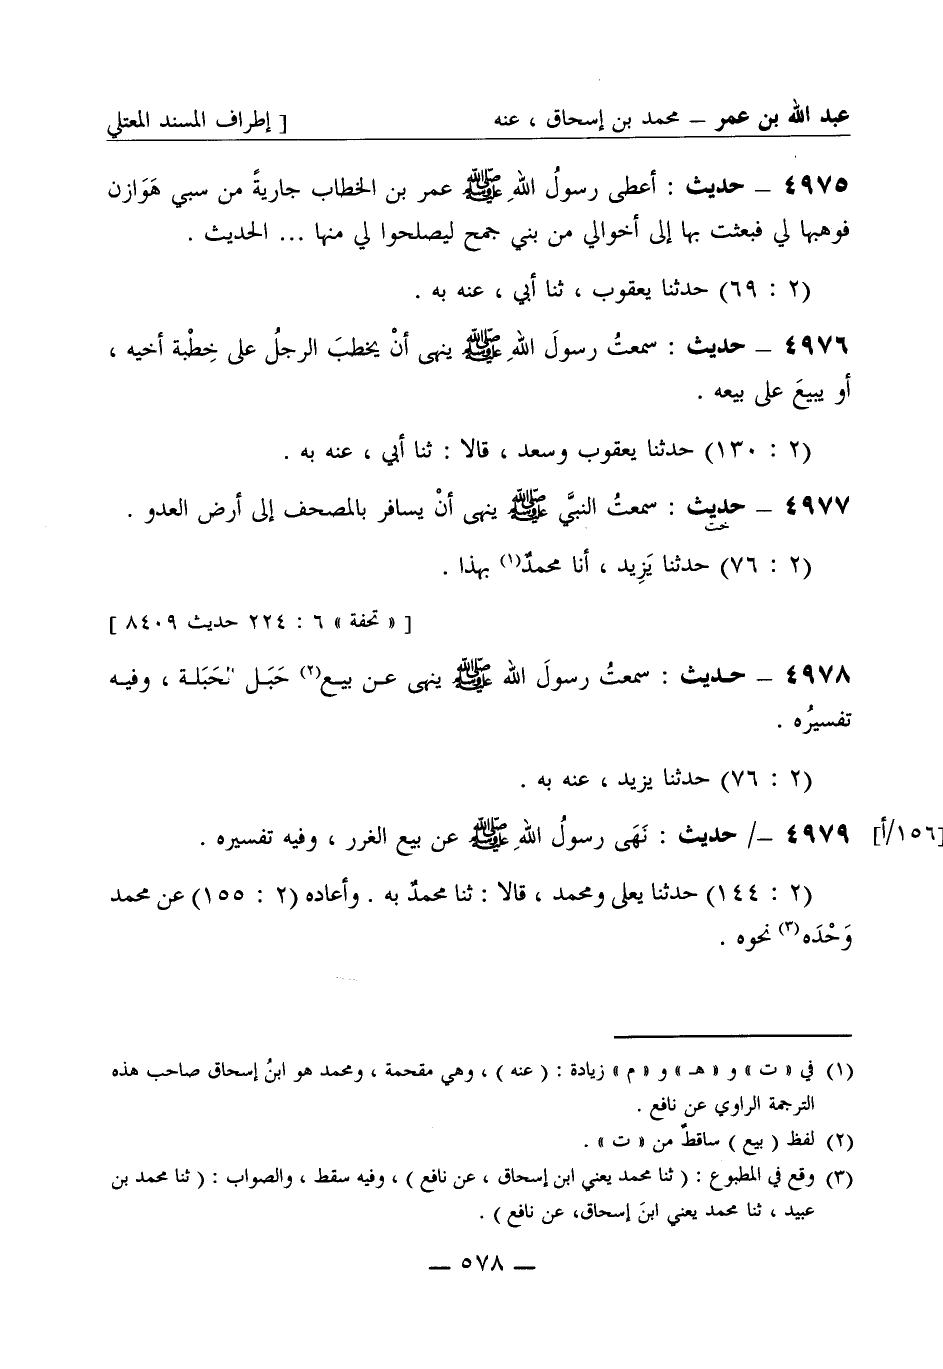 عبد الله بن عمر – محمد بن إسحاق ، عنه [ إطراف المسند المعتلي
٤٩٧٥ – حديث : أعطى رسولُ اللهِ ﷺ عمر بن الخطاب جاريةً من سبي هَوَازن
فوهبها لي فبعثت بها إلى أخوالي من بني جمح ليصلحوا لي منها ... الحديث .
(٢ : ٦٩) حدثنا يعقوب ، ثنا أبي ، عنه به .
٤٩٧٦ – حديث : سمعتُ رسولَ اللهِ ﷺ ينهى أنْ يخطبَ الرجلُ على خِطْبة أخيه ،
أو يبيعَ على بيعه .
(٢ : ١٣٠) حدثنا يعقوب وسعد ، قالا : ثنا أبي ، عنه به .
٤٩٧٧ – حديث : سمعتُ النبيَّ ﷺ ينهى أنْ يسافر بالمصحف إلى أرض العدو .
خت
(٢ : ٧٦) حدثنا يَزِيد ، أنا محمدٌ(١) بهذا .
[ « تحفة » ٦ : ٢٢٤ حديث ٨٤٠٩ ]
٤٩٧٨ – حديث : سمعتُ رسولَ الله ﷺ ينهى عن بيع(٢) حَبَل الحَبَلة ، وفيه
تفسيرُه .
(٢ : ٧٦) حدثنا يزيد ، عنه به .
[١٥٦/أ] ٤٩٧٩ –/ حديث : نَهَى رسولُ اللهِ ﷺ عن بيع الغرر ، وفيه تفسيره .
(٢ : ١٤٤) حدثنا يعلى ومحمد ، قالا : ثنا محمدٌ به . وأعاده (٢ : ١٥٥) عن محمد
وَحْدَه(٣) نحوه .
(١) في « ت » و « هـ » و « م » زيادة : ( عنه ) ، وهي مقحمة ، ومحمد هو ابنُ إسحاق صاحب هذه
الترجمة الراوي عن نافع .
(٢) لفظ ( بيع ) ساقطٌ من « ت » .
(٣) وقع في المطبوع : ( ثنا محمد يعني ابن إسحاق ، عن نافع ) ، وفيه سقط ، والصواب : ( ثنا محمد بن
عبيد ، ثنا محمد يعني ابنَ إسحاق، عن نافع ) .
– ٥٧٨ –